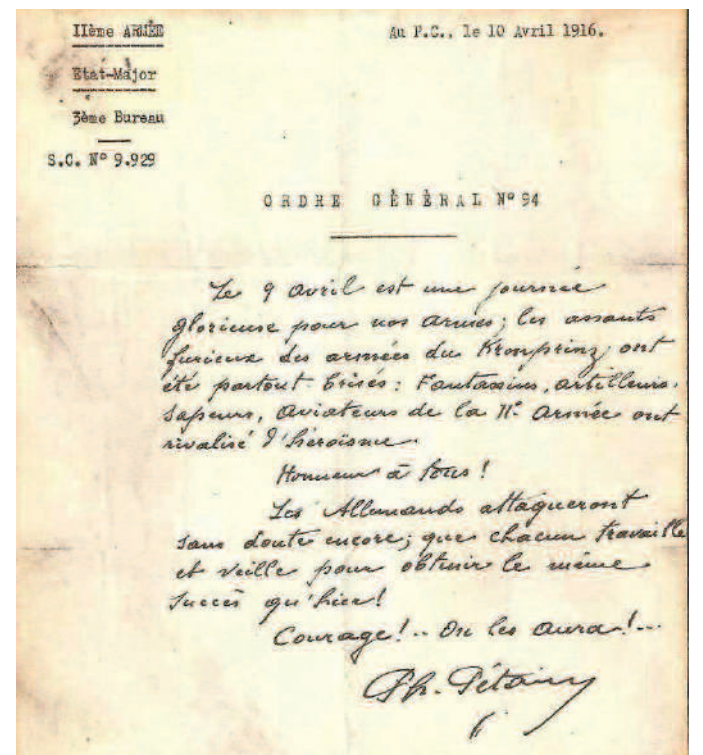 IIème ARMÉE
Au P.C., le 10 Avril 1916.
Etat-Major
3ème Bureau
S.C. N° 9.929
ORDRE GÉNÉRAL N° 94
Le 9 avril est une journée
glorieuse pour nos armes; les assauts
furieux des armées du Kronprinz ont
été partout brisés : Fantassins, artilleurs,
sapeurs, aviateurs de la IIe Armée ont
rivalisé d'héroïsme.
Honneur à tous !
Les Allemands attaqueront
sans doute encore; que chacun travaille
et veille pour obtenir le même
succès qu'hier !
Courage ! .. On les aura ! ...
Ph. Pétain